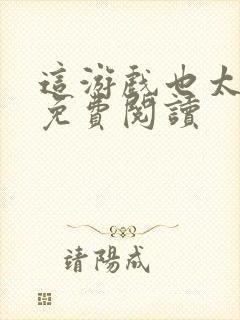 這游戲也太
免費閱讀
靖陽成